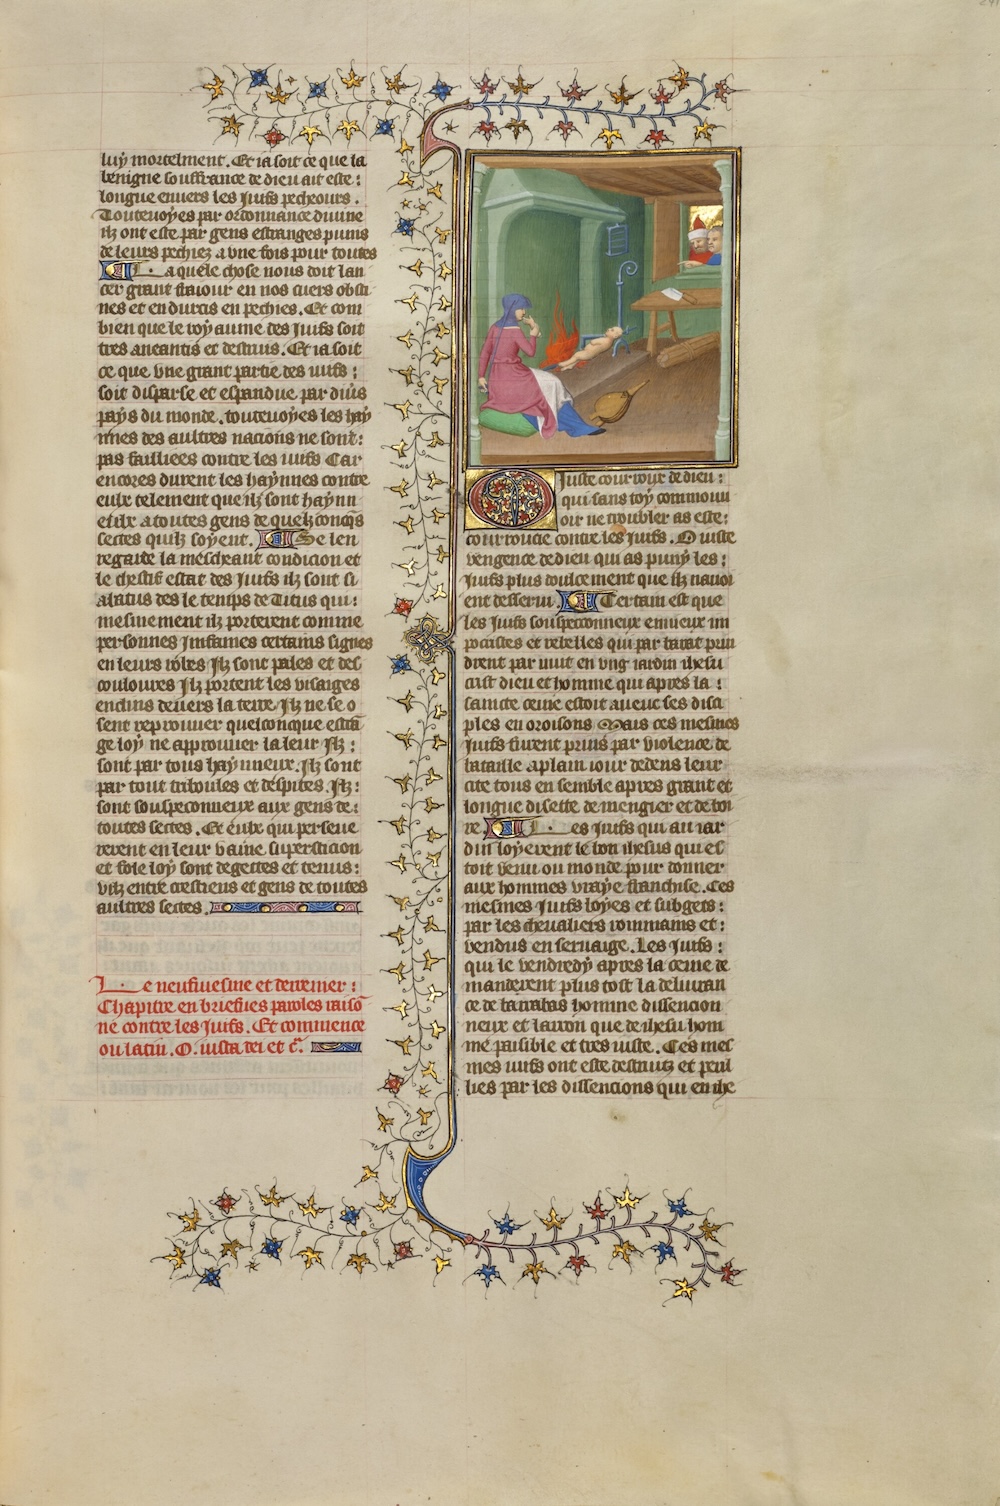 luy mortelment. Et ia soit ce que la
benigne souffrance de dieu ait este :
longue enuers les Juifs pecheours.
Toutenoyes par ordonnance diuine
ilz ont este par gens estranges puniz
de leurs pechiez a vne fois pour toutes
La quele chose nous doit lan
cer grant fraiour en nos cuers obsti
nes et endurcis en pechies. Et com
bien que le royaume des Juifs soit
tres aneantis et destruis. Et ia soit
ce que vne grant partie des iuifs :
soit disparse et espandue par diuers
pays du monde. toutenoyes les hay
nnes des aultres nacions ne sont :
pas faillies contre les iuifs Car
encores durent les haynnes contre
eulx telement que ilz sont haynn
eulx a toutes gens de quelzconqs
sectes quilz soyent. Se len
regarde la mescheant condicion et
le chestif estat des Juifs ilz sont si
alatus des le temps de Titus qui :
mesmement ilz porterent comme
personnes Jnfames certains signes
en leurs robes Jlz sont pales et des
couloures Jlz portent les visaiges
enclins deuers la terre. Jlz ne se o
sent reprouuer quelconcque estra
ge loy ne approuuer la leur Jlz :
sont par tous haynneux. Jlz sont
par tout triboules et despites. Jlz :
sont souspeconneux aux gens de :
toutes sectes. Et eulx qui perseue
rerent en leur vaine supersticion
et fole loy sont degectes et tenus :
vilz entre crestiens et gens de toutes
aultres sectes.
Le neufiuesme et derrenier :
Chapitre en briefues paroles raiso
ne contre les Juifs. Et commence
ou latin. O. iusta dei et c.
O Juste courroux de dieu :
qui sans toy commouu
oir ne troubler as este :
courroucie contre les Juifs. O iuste
vengence de dieu qui as puny les :
Juifs plus doulcement que ilz nauoi
ent desserui. Certain est que
les Juifs souspeconneux enuieux im
pocrites et rebelles qui par barat prin
drent par nuit en vng iardin ihesu
crist dieu et homme qui apres la :
saincte cene estoit auenc ses disci
ples en oroisons Mais ces mesmes
Juifs furent prins par violence de
bataille a plain iour dedens leur
cite tous en semble apres grant et
longue disette de mengier et de boi
re. Les Juifs qui au iar
din loyerent le bon ihesus qui es
toit venu ou monde pour donner
aux hommes vraye franchise. Ces
mesmes Juifs loyes et subgets :
par les cheualiers rommains et :
vendus en seruaige. Les Juifs :
qui le vendredy apres la cene de
manderent plus tost la deliuran
ce de barrabas homme dissencion
neux et larron que de ihesu hom
me paisible et tres iuste. Ces mes
mes iuifs ont este destruitz et peril
lies par les dissencions qui en ihe